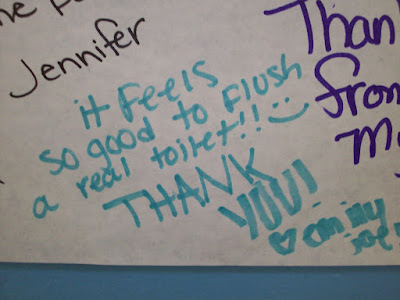 he p
Jennifer
it Feels
so good to Flush
a real toilet!! :)
THANK
YOU!
♡ emily
joe!
Than
from
My